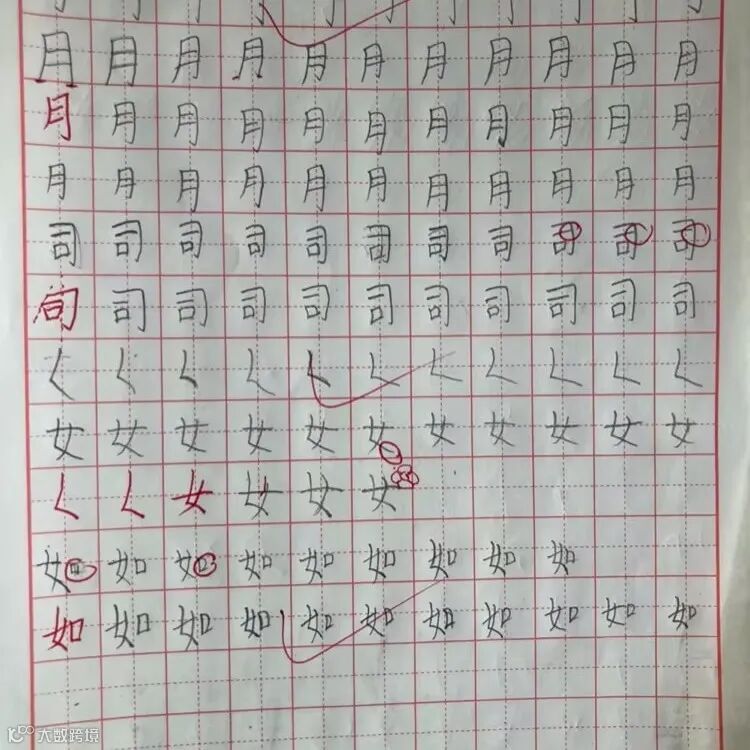 月 月 月 月 月 月 月 月 月 月 月
月 月 月 月 月 月 月 月 月 月 月
月 月 月 月 月 月 月 月 月 月 月
司 司 司 司 司 司 司 司 司 司 司
司 司 司 司 司 司 司 司 司 司 司
𡿨 𡿨 𡿨 𡿨 𡿨 𡿨 𡿨 𡿨 𡿨 𡿨 𡿨
女 女 女 女 女 女 女 女 女 女 女
𡿨 𡿨 女 女 女 女
如 如 如 如 如 如 如 如 如
如 如 如 如 如 如 如 如 如 如 如
大数跨境